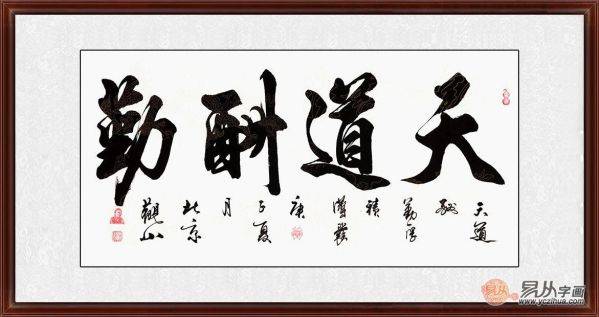 天道酬勤
天道
酬
勤厚
積
薄發
庚
子夏
月
北京
觀山
易从字画
www.yczihua.com